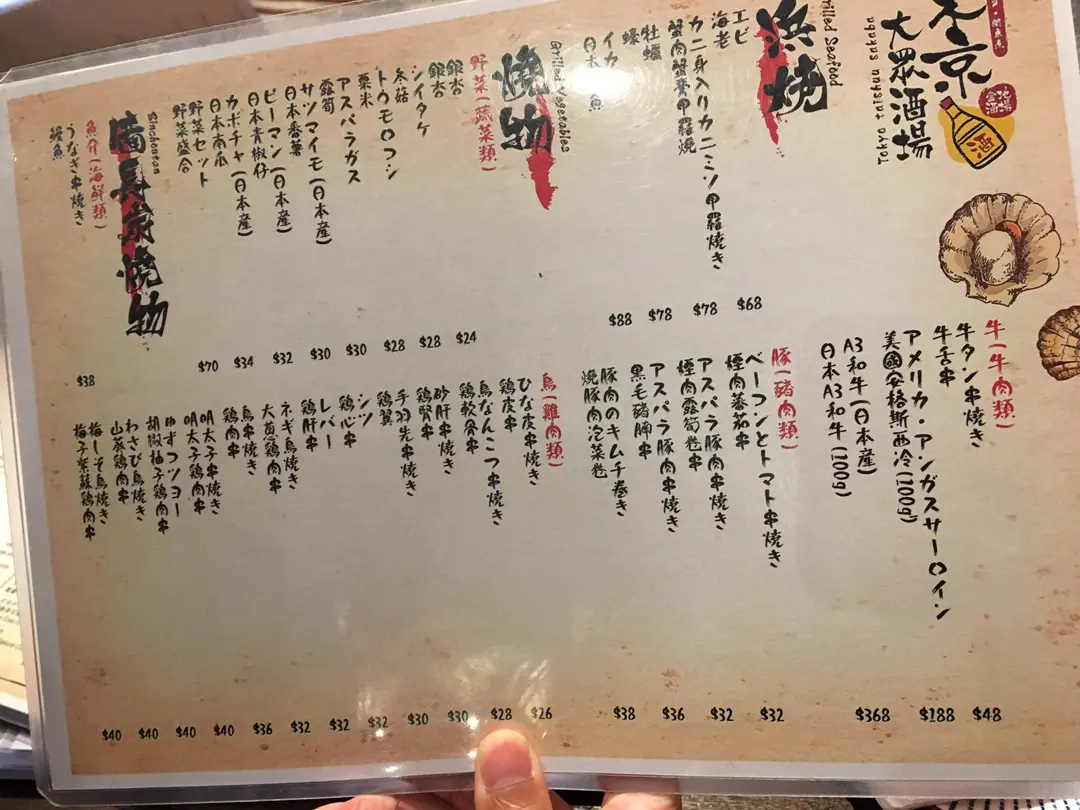 京
大眾酒場
Tokyo taishuu sakaba
酒
浜焼
Grilled Seafood
エビ
海老
$68
カニ身入りカニミソ甲羅焼き
蟹肉蟹膏甲羅燒
$78
牡蠣
蠔
$78
イカ
日本 魚
$88
燒物
Grilled Vegetables
野菜(蔬菜類)
銀杏
銀杏
$24
シイタケ
冬菇
$28
トウモロコシ
粟米
$28
アスパラガス
露筍
$30
サツマイモ(日本産)
日本番薯
$30
ピーマン(日本産)
日本青椒仔
$32
カボチャ(日本産)
日本南瓜
$34
野菜セット
野菜盛合
$70
備長炭燒物
Binchoutan
魚介(海鮮類)
うなぎ串焼き
鰻魚
$38
牛(牛肉類)
牛タン串焼き
牛舌串
$48
アメリカ・アンガスサーロイン
美國安格斯西冷(100g)
$188
A3和牛(日本産)
日本A3和牛(100g)
$368
豚(豬肉類)
ベーコンとトマト串焼き
煙肉蕃茄串
$32
アスパラ豚肉串焼き
煙肉露筍卷串
$32
アスパラ豚肉串焼き
黒毛豬腩串
$36
豚肉のキムチ巻き
燒豚肉泡菜卷
$38
鳥(雞肉類)
ひな皮串焼き
鶏皮串
$26
鳥なんこつ串焼き
鶏軟骨串
$28
砂肝串焼き
鶏腎串
$30
手羽先串焼き
鶏翼
$30
シツ
鶏心串
$32
レバー
鶏肝串
$32
ネギ鳥焼き
大葱鶏肉串
$32
鳥串焼き
鶏肉串
$36
明太子串焼き
明太子鶏肉串
$40
ゆずコツヨー
胡椒柚子鶏肉串
$40
わさび鳥焼き
山葵鶏肉串
$40
梅しそ鳥焼き
梅子紫蘇鶏肉串
$40